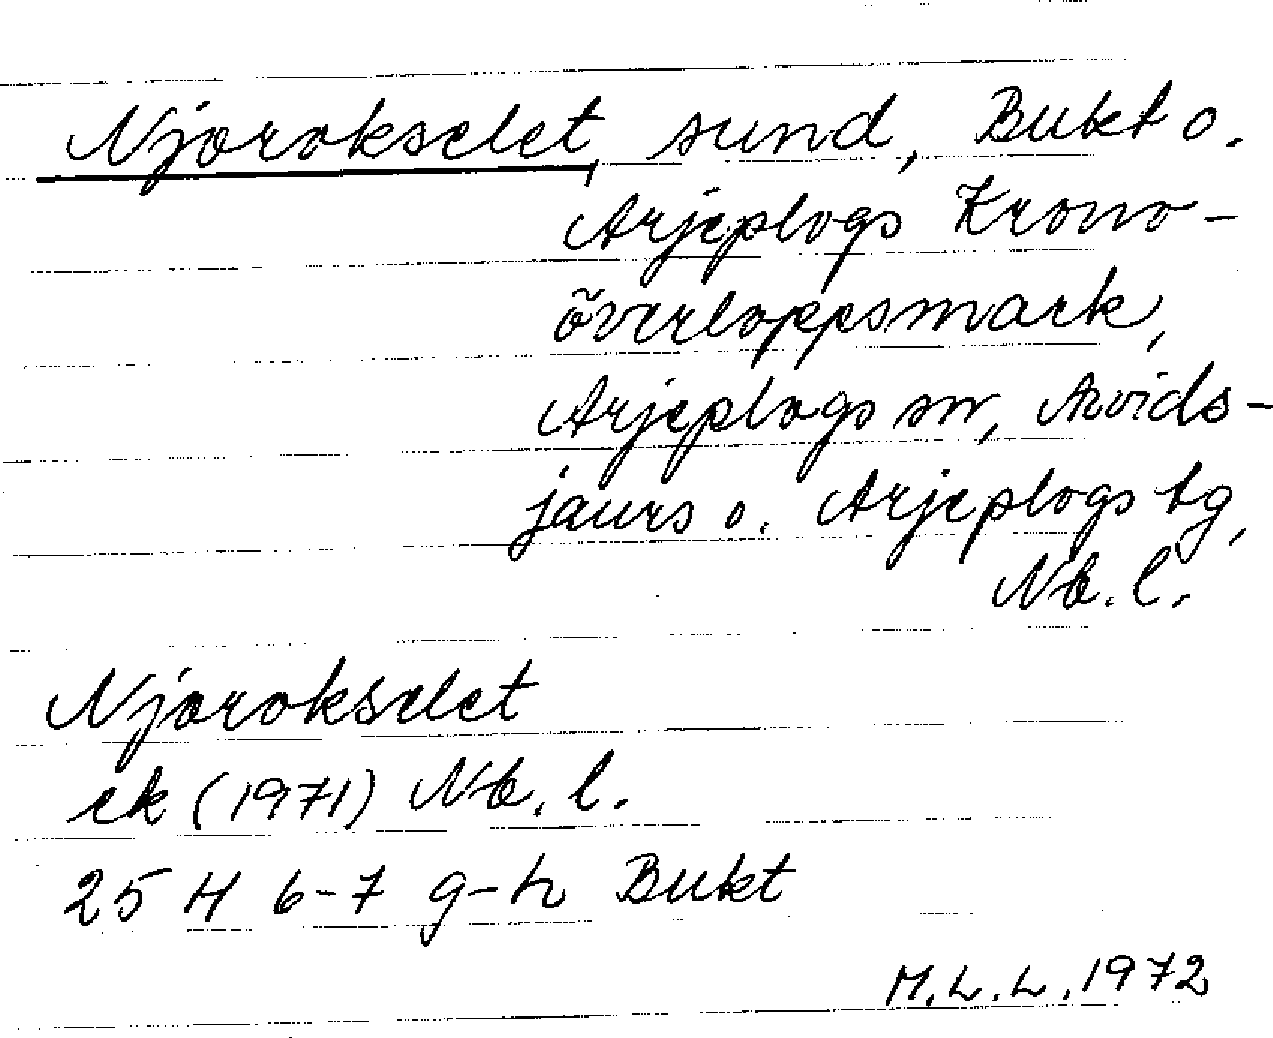 Njarokselet, sund, Bukt o.
Arjeplogs Krono-
överloppsmark,
Arjeplogs sn, Arvids-
jaurs o. Arjeplogs tg,
Nb. l.
Njarokselet
ek (1971) Nb. l.
25 H 6-7 g-h Bukt
M.L.L. 1972